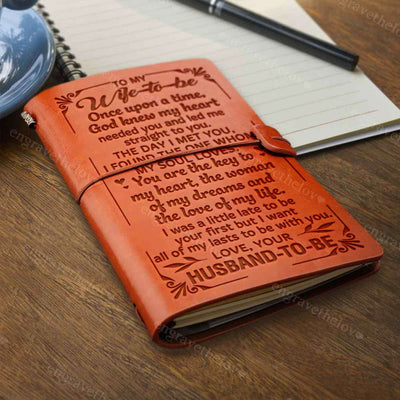 TO MY
Wife-to-be
Once upon a time,
God knew my heart
needed you and led me
straight to you,
THE DAY I MET YOU,
I FOUND THE ONE WHOM
MY SOUL LOVES.
You are the key to
my heart, the woman
of my dreams and
the love of my life.
I was a little late to be
your first but I want
all of my lasts to be with you.
LOVE, YOUR
HUSBAND-TO-BE
engravethelove